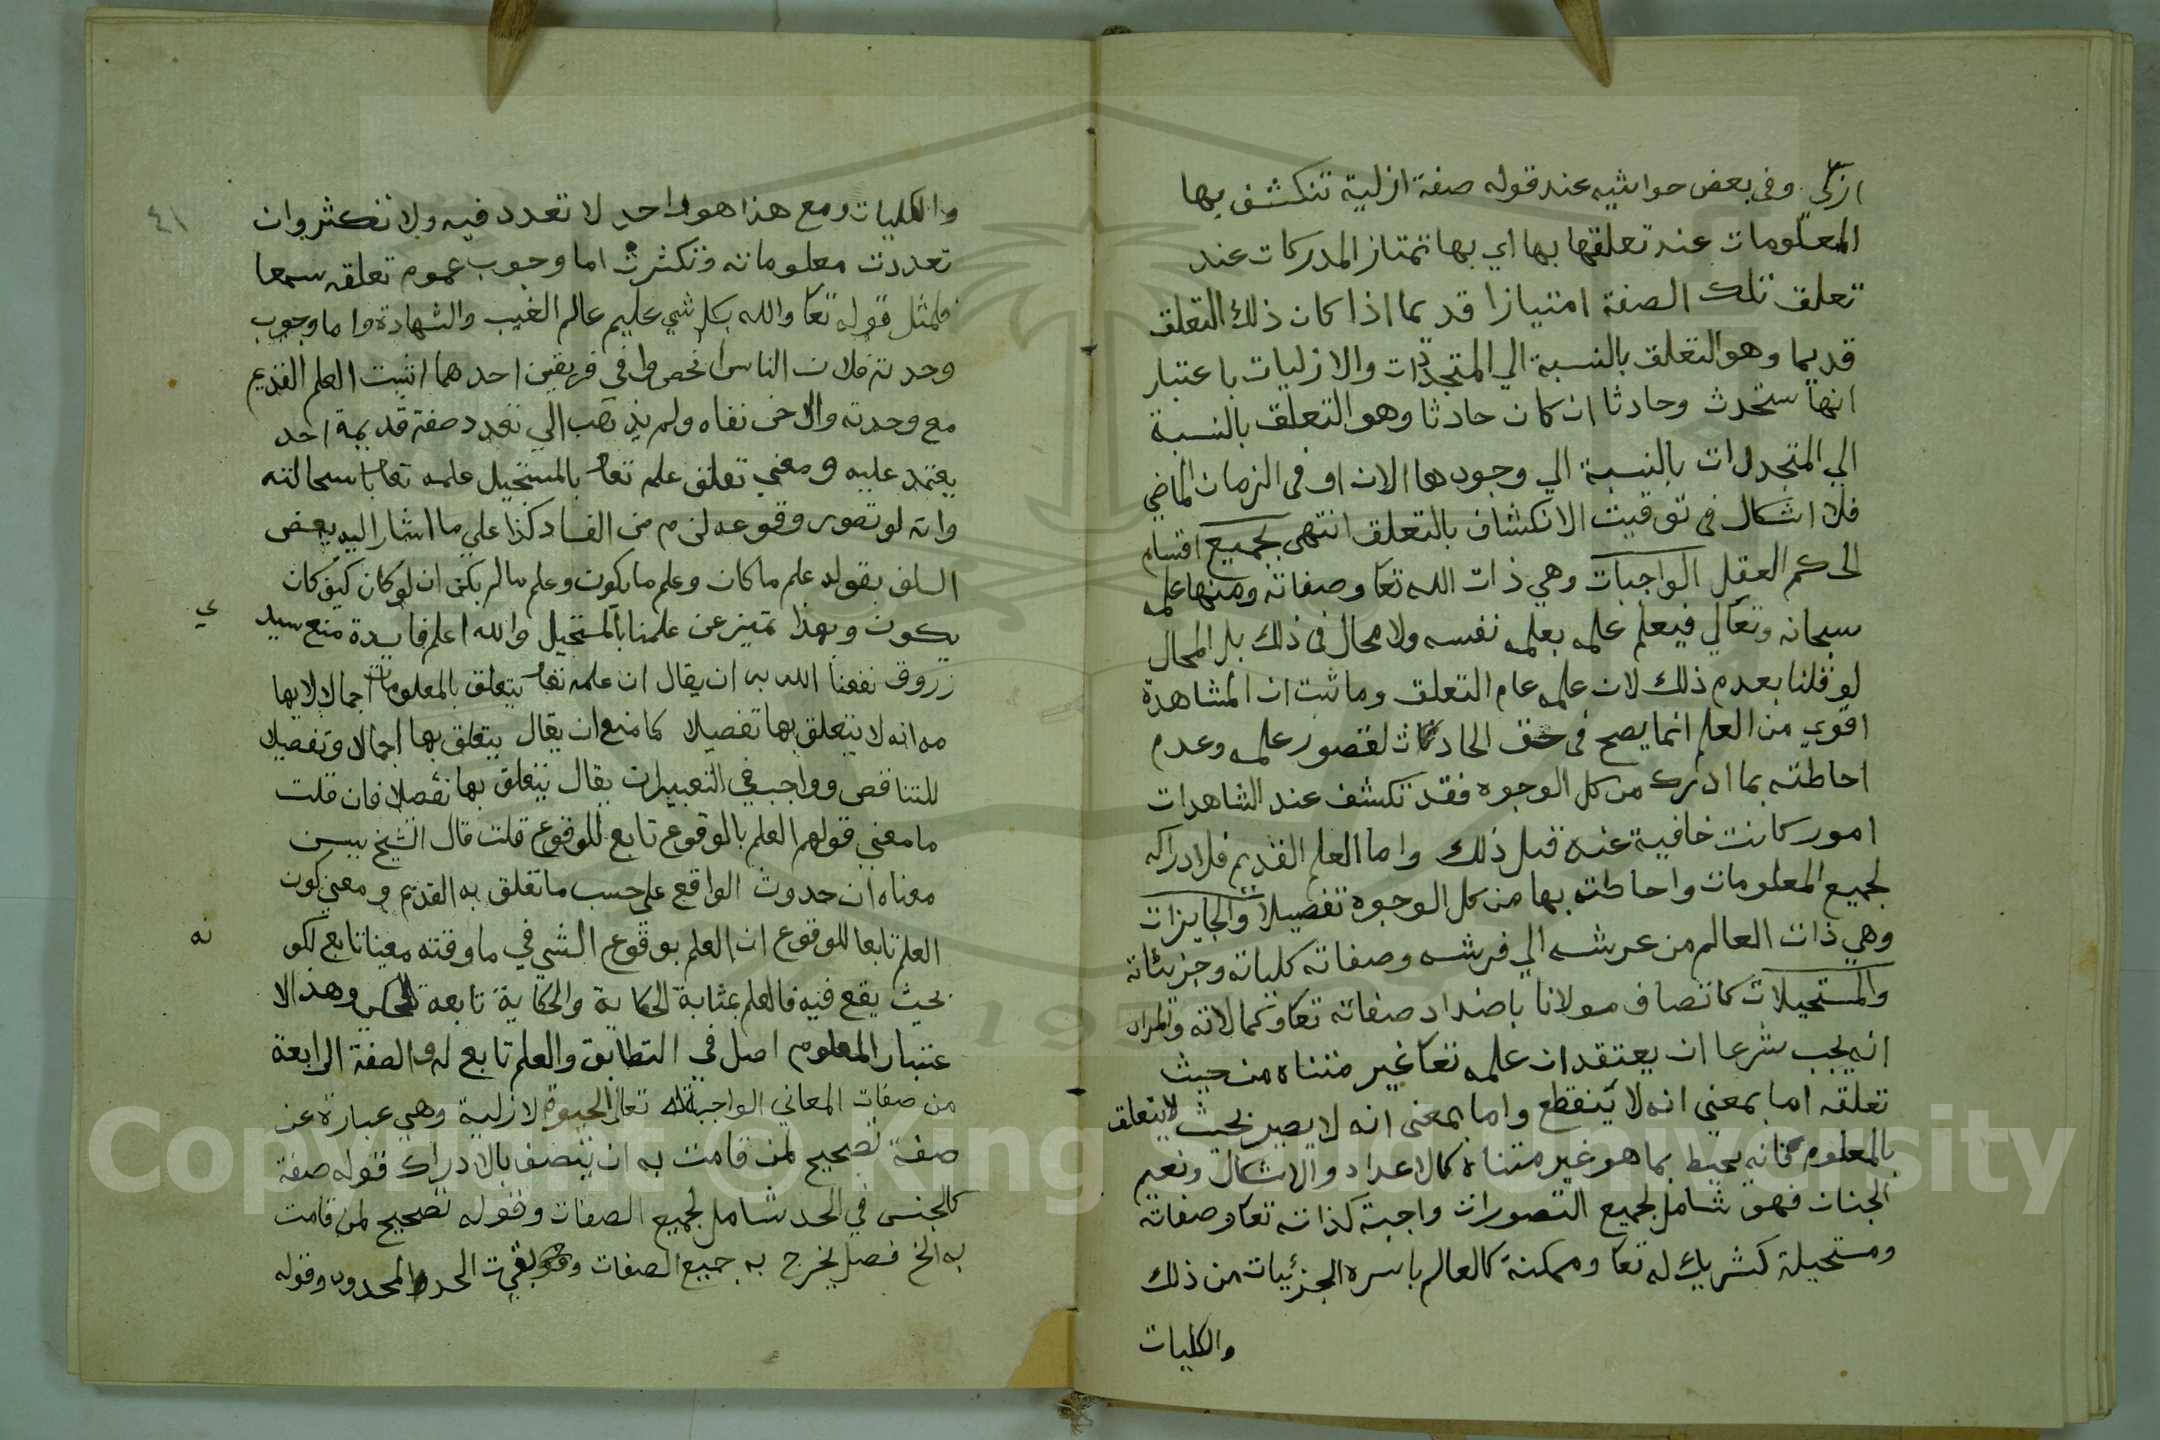 ازلي وفي بعض حواشيه عند قوله صفة ازلية تنكشف بها
المعلومات عند تعلقها بها اي بها تمتاز المدركات عند
تعلق تلك الصفة امتيازا قديما اذا كان ذلك التعلق
قديما وهو التعلق بالنسبة الي المتجددات والازليات باعتبار
انها ستحدث وحادثا ان كان حادثا وهو التعلق بالنسبة
الي المتجددات بالنسبة الي وجودها الان او في الزمان الماضي
فلا اشكال في توقيت الانكشاف بالتعلق انتهى بجميع اقسام
الحكم العقل الواجبات وهي ذات الله تعا وصفاته ومنها علمه
سبحانه وتعالي فيعلم علمه بعلمه نفسه ولا محال في ذلك بل المحال
لو قلنا بعدم ذلك لان علمه عام التعلق وما ثبت ان المشاهدة
اقوي من العلم انما يصح في حق الحادث لقصور علمه وعدم
احاطته بما ادرك من كل الوجوه فقد تكشف عند الشاهدات
امور كانت خافية عنه قبل ذلك واما العلم القديم فلادراكه
لجميع المعلومات واحاطته بها من كل الوجوه تفصيلا والجايزات
وهي ذات العالم من عرشه الي فرشه وصفاته كلياته وجزئياته
والمستحيلات كاتصاف مولانا باضداد صفاته تعا وكمالاته والمراد
انه يجب شرعا ان يعتقد ان علمه تعا غير متناه من حيث
تعلقه اما بمعني انه لا ينقطع واما بمعني انه لا يصير بحيث لا يتعلق
بالمعلوم فانه يحيط بما هو غير متناه كالاعداد والاشكال ونعيم
الجنان فهو شامل لجميع التصورات واجبة كذاته تعا وصفاته
ومستحيلة كشريك له تعا وممكنة كالعالم باسره الجزئيات من ذلك
والكليات
والكليات ومع هذا هو واحد لا تعدد فيه ولا تكثر وان
تعددت معلوماته وتكثرت اما وجوب عموم تعلقه سمعا
فلمثل قوله تعا والله بكل شي عليم عالم الغيب والشهادة واما وجوب
وحدته فلان الناس انحصروا في فريقين احدهما اثبت العلم القديم
مع وحدته والاخر نفاه ولم يذهب الي تعدد صفة قديمة احد
يعتمد عليه ومعني تعلق علم تعا بالمستحيل علمه تعا باستحالته
وانه لو تصور وقوعه لزم من الفساد كذا علي ما اشار اليه بعض
السلف بقوله علم ما كان وعلم ما يكون وعلم ما لم يكن ان لو كان كيف كان
يكون وبهذا تميز عن علمنا بالمستحيل والله اعلم فايدة منع سيدي
زروق نفعنا الله به ان يقال ان علمه تعا يتعلق بالمعلومات اجمالا لايها
مه انه لا يتعلق بها تفصيلا كما منع ان يقال يتعلق بها اجمالا وتفصيلا
للتناقض وواجب في التعبير ان يقال يتعلق بها تفصلا فان قلت
ما معني قولهم العلم بالوقوع تابع للوقوع قلت قال الشيخ يسين
معناه ان حدوث الواقع علي حسب ما تعلق به القديم ومعني كون
العلم تابعا للوقوع ان العلم بوقوع الشي في ما وقته معينا تابع لكونه
بحيث يقع فيه فالعلم بمثابة الحكاية والحكاية تابعة للمحكي وهذا الا
عتبار المعلوم اصل في التطابق والعلم تابع له والصفة الرابعة
من صفات المعاني الواجبة له تعالى الحيوة لازلية وهي عبارة عن
صفة تصحيح لمن قامت به ان يتصف بالادراك قوله صفة
كالجنس في الحد شامل لجميع الصفات وقوله تصحيح لمن قامت
به الخ فصل يخرج به جميع الصفات وبقيت الحد والمحدود وقوله
٤١
Copyright © King Saud University